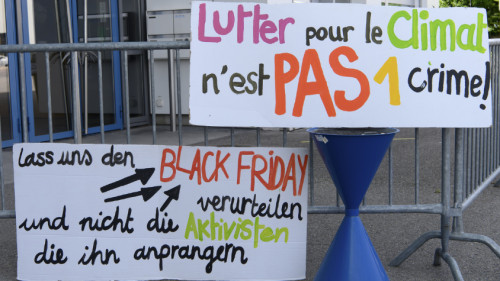 Lutter pour le Climat
n'est PAS 1 crime!
Lass uns den BLACK FRIDAY
verurteilen
und nicht die Aktivisten
die ihn anprangern